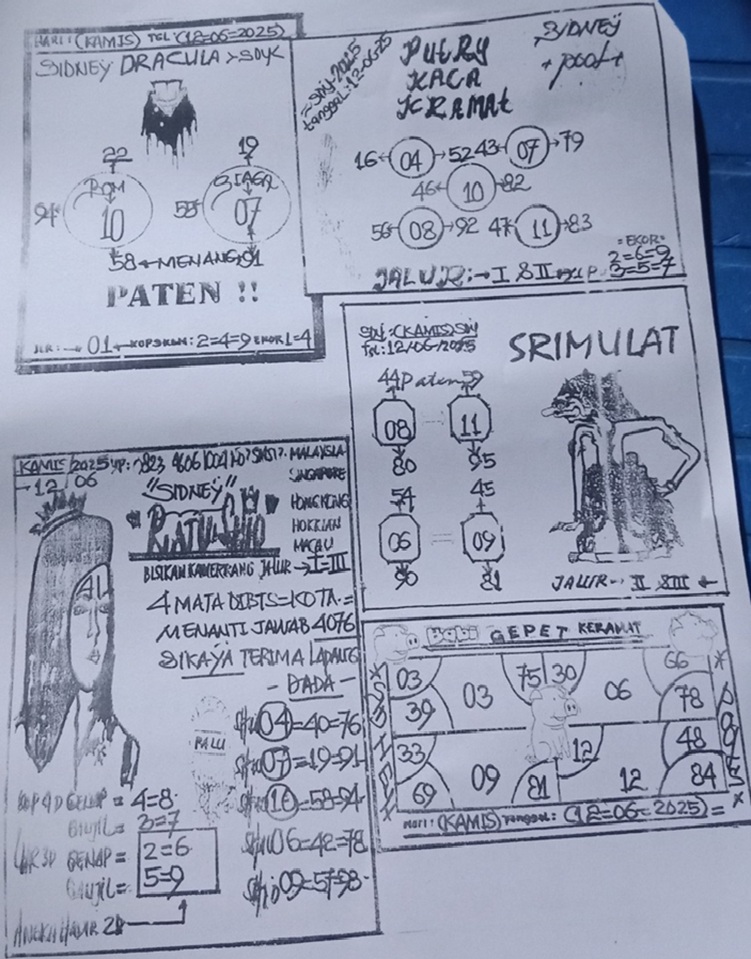 HARI: (KAMIS) TGL (12=06=2025)
SIDNEY DRACULA > SDYK
22
19
ROM
SIAGA
94
10
55
07
58
MENANG
91
PATEN !!
01
2=4=9 EKOR 1=4
= SDY-2025
tanggal: 12-06-25
PUTRY
KACA
KRAMAT
SIDNEY
pool
16 04 52 43 07 79
46 10 82
56 08 92 47 11 83
JALUR: I & II
=EKOR=
2=6=9
3=5=7
SDY: (KAMIS) SDY
TGL: 12/06/2025
SRIMULAT
44 Paten 59
08 11
80 95
54 45
06 = 09
90 81
JALUR II & III
KAMIS/2025
12/06
MALAYSIA
SINGAPORE
HONGKONG
HOKKIAN
MACAU
"SIDNEY"
RATU SHIO
JALUR I-III
4 MATA DIBIS=KOTA=
MENANTI JAWAB 4076
SIKAYA TERIMA LADANG
- DADA -
PALU
Shio 04=40=76
Shio 07=19=91
Shio 10=58=94
Shio 06=42=78
Shio 09=57=98
KOP 4D GENAP = 4=8
GANJIL = 3=7
3D GENAP = 2=6
GANJIL = 5=9
ANGKA HADIR 2D
Babi GEPET KERAMAT
03 03 75 30 06 66
39 78
33 12 48
69 09 81 12 84
HARI: (KAMIS) Tanggal: (12=06=2025) =